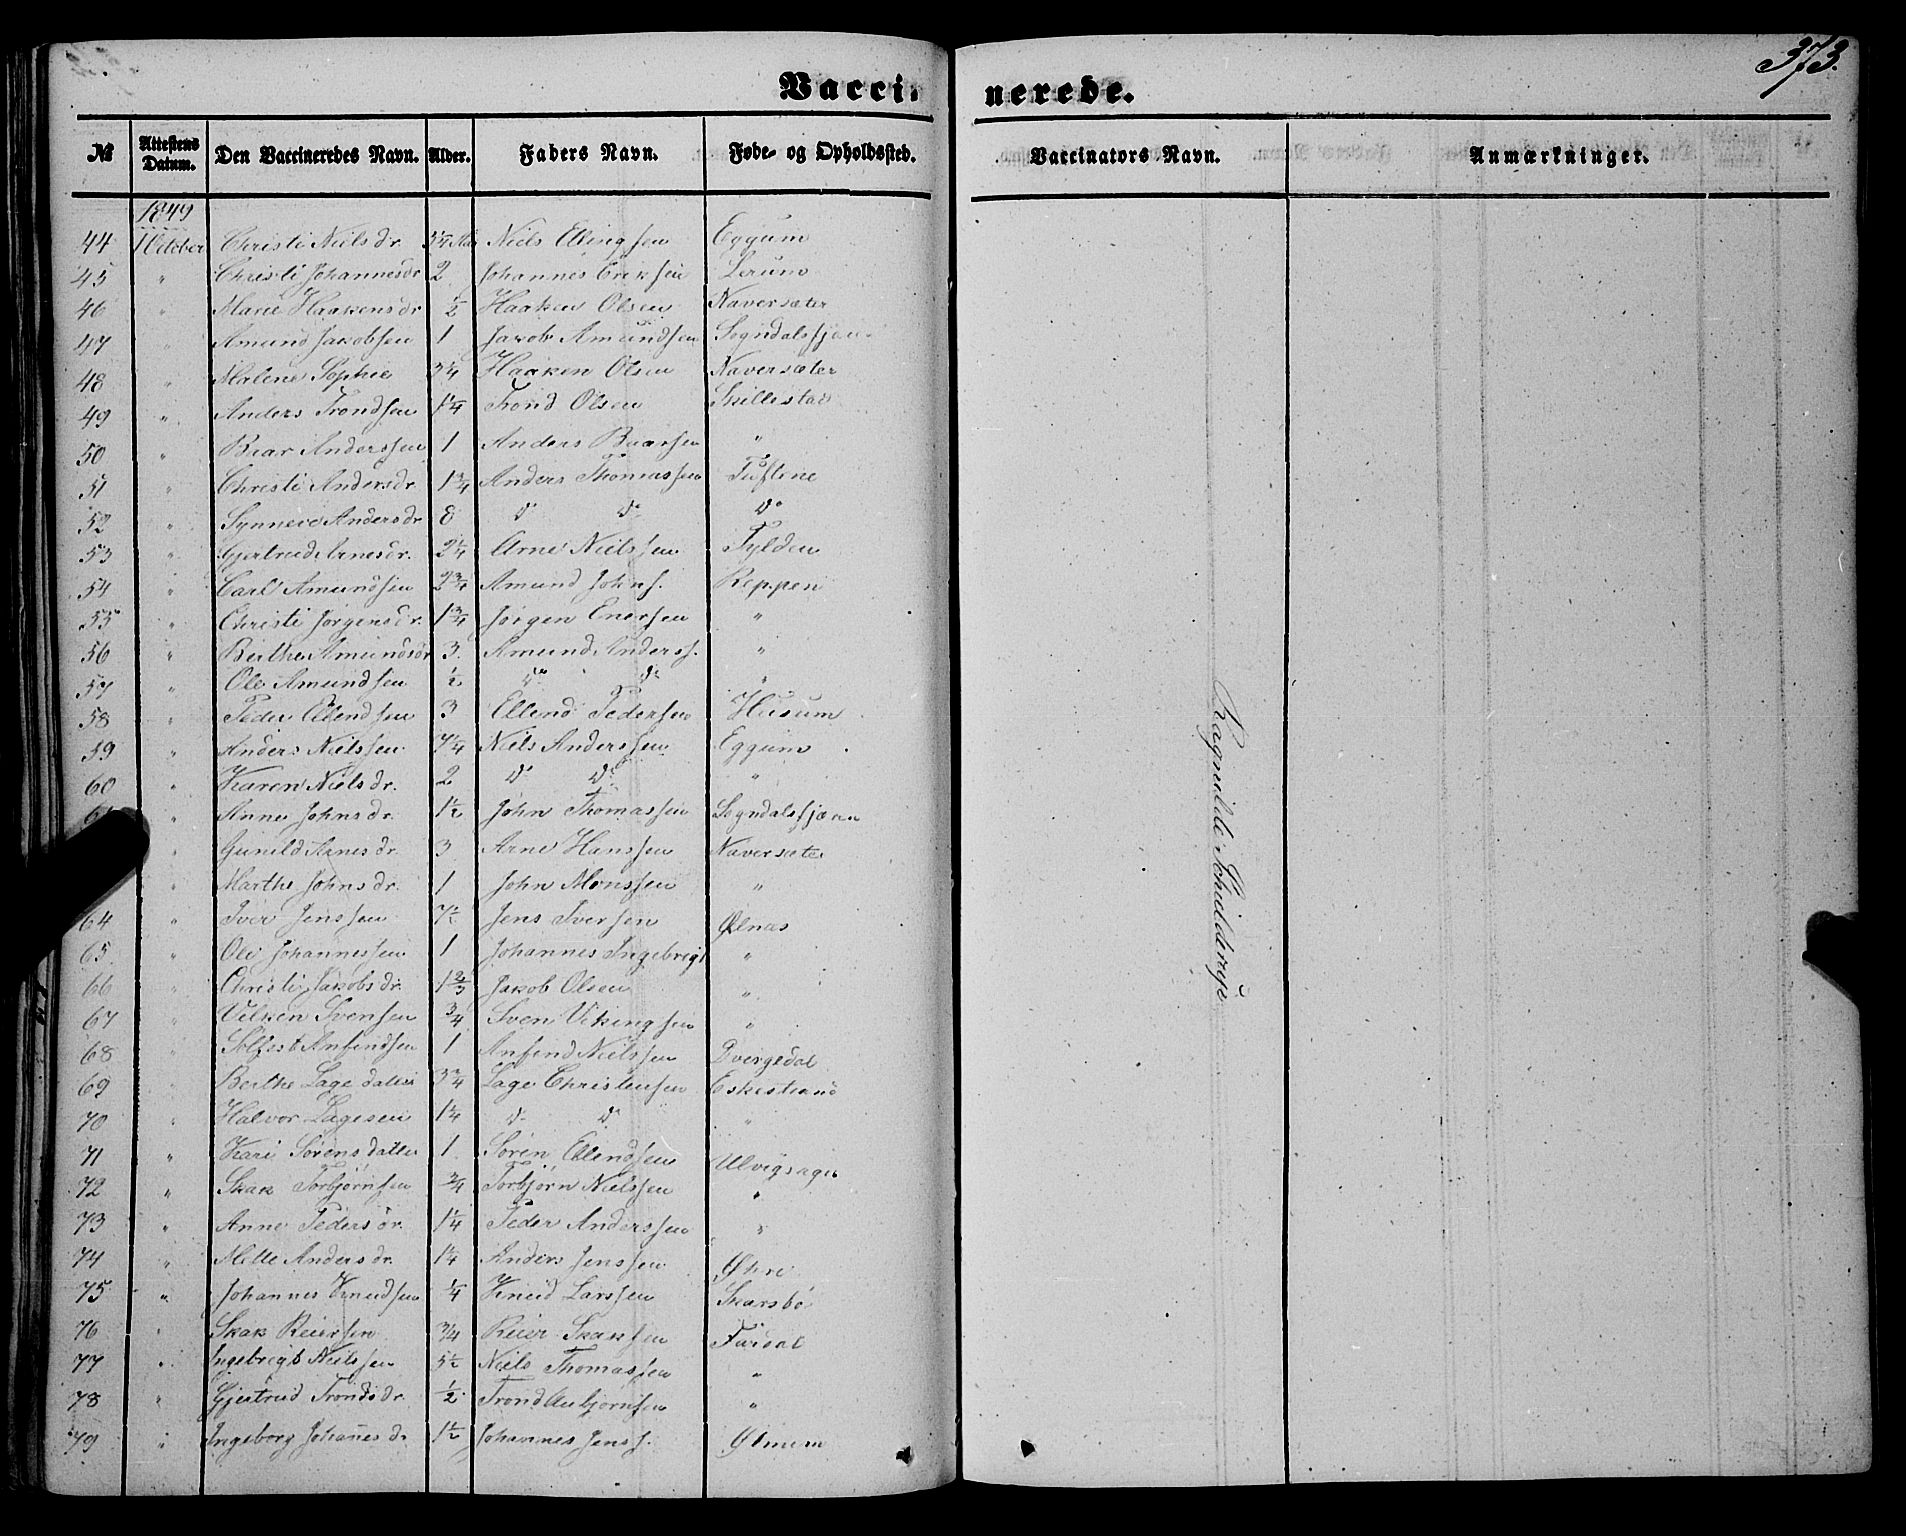 373.
Vaccinerede.
№ Attestens Datum. Den Vaccineredes Navn. Alder. Faders Navn. Føde- og Opholdssted. Vaccinators Navn. Anmærkninger.
1849
44 1 October Christi Nielsdr. 5¼ Aar Niels Ellingsen Eggum
45 " Christi Johannesdr 2 Johannes Eriksen Lerum
46 " Marie Haakensdr ½ Haaken Olsen Naversæter
47 " Amund Jakobsen 1 Jakob Amundsen Sogndalsfjæren
48 " Malene Sophie 3¼ Haaken Olsen Naversæter
49 " Anders Trondsen 1¼ Trond Olsen Skillestad
50 " Baar Anderssen 1 Anders Baarsen "
51 " Christi Andersdr 1¾ Anders Thomassen Tuftene
52 " Synneve Andersdr 8 do do do
53 " Gjertrud Arnesdr. 2¼ Arne Nielssen Fylden
54 " Carl Amundsen 2¾ Amund Johns. Reppen
55 " Christi Jørgensdr. 1¾ Jørgen Enersen "
56 " Berthe Amundsdr 3. Amund Anderss. "
57 " Ole Amundsen ½ do do "
58 " Peder Ellendsen 3 Ellend Pedersen Husum
59 " Anders Nielssen 7¼ Niels Anderssen Eggum
60 " Karen Nielsdr. 2 do do "
" Anne Johnsdr. 1½ John Thomassen Sogndalsfjæren
" Gunild Arnesdr. 3 Arne Hanssen Naversæter
" Marthe Johnsdr. 1 John Monssen "
64 " Iver Jenssen 7½ Jens Iversen Ølnas
65 " Ole Johannessen 1 Johannes Ingebrigt "
66 " Christi Jakobsdr. 1⅔ Jakob Olsen "
67 " Velken Svensen ¾ Sven Vikingsen "
68 " Solfest Anfindsen 1 Anfind Nielssen Dvergedal
69 " Berthe Lagedatter 3¾ Lage Christensen Eskestrand
70 " Halvor Lagesen 1¼ do do "
71 " Kari Sørensdatter 1. Søren Ellendsen Ulvigsager
72 " Skak Torbjørnsen ¾ Torbjørn Nielssen "
73 " Anne Pedersdr. 1¼ Peder Anderssen "
74 " Mette Andersdr. 1¼ Anders Jenssen Øhre
75 " Johannes Knudsen ¼ Knud Larssen Skarsbø
76 " Skak Reiersen ¾ Reier Skaksen Fardal
77 " Ingebrigt Nielssen 5½ Niels Thomassen "
78 " Gjertrud Trondsdr. ½ Trond Aubjørnsen "
79 " Ingeborg Johanesdr 1½ Johannes Jenss. Ølmem
Ragnilde Schilderup